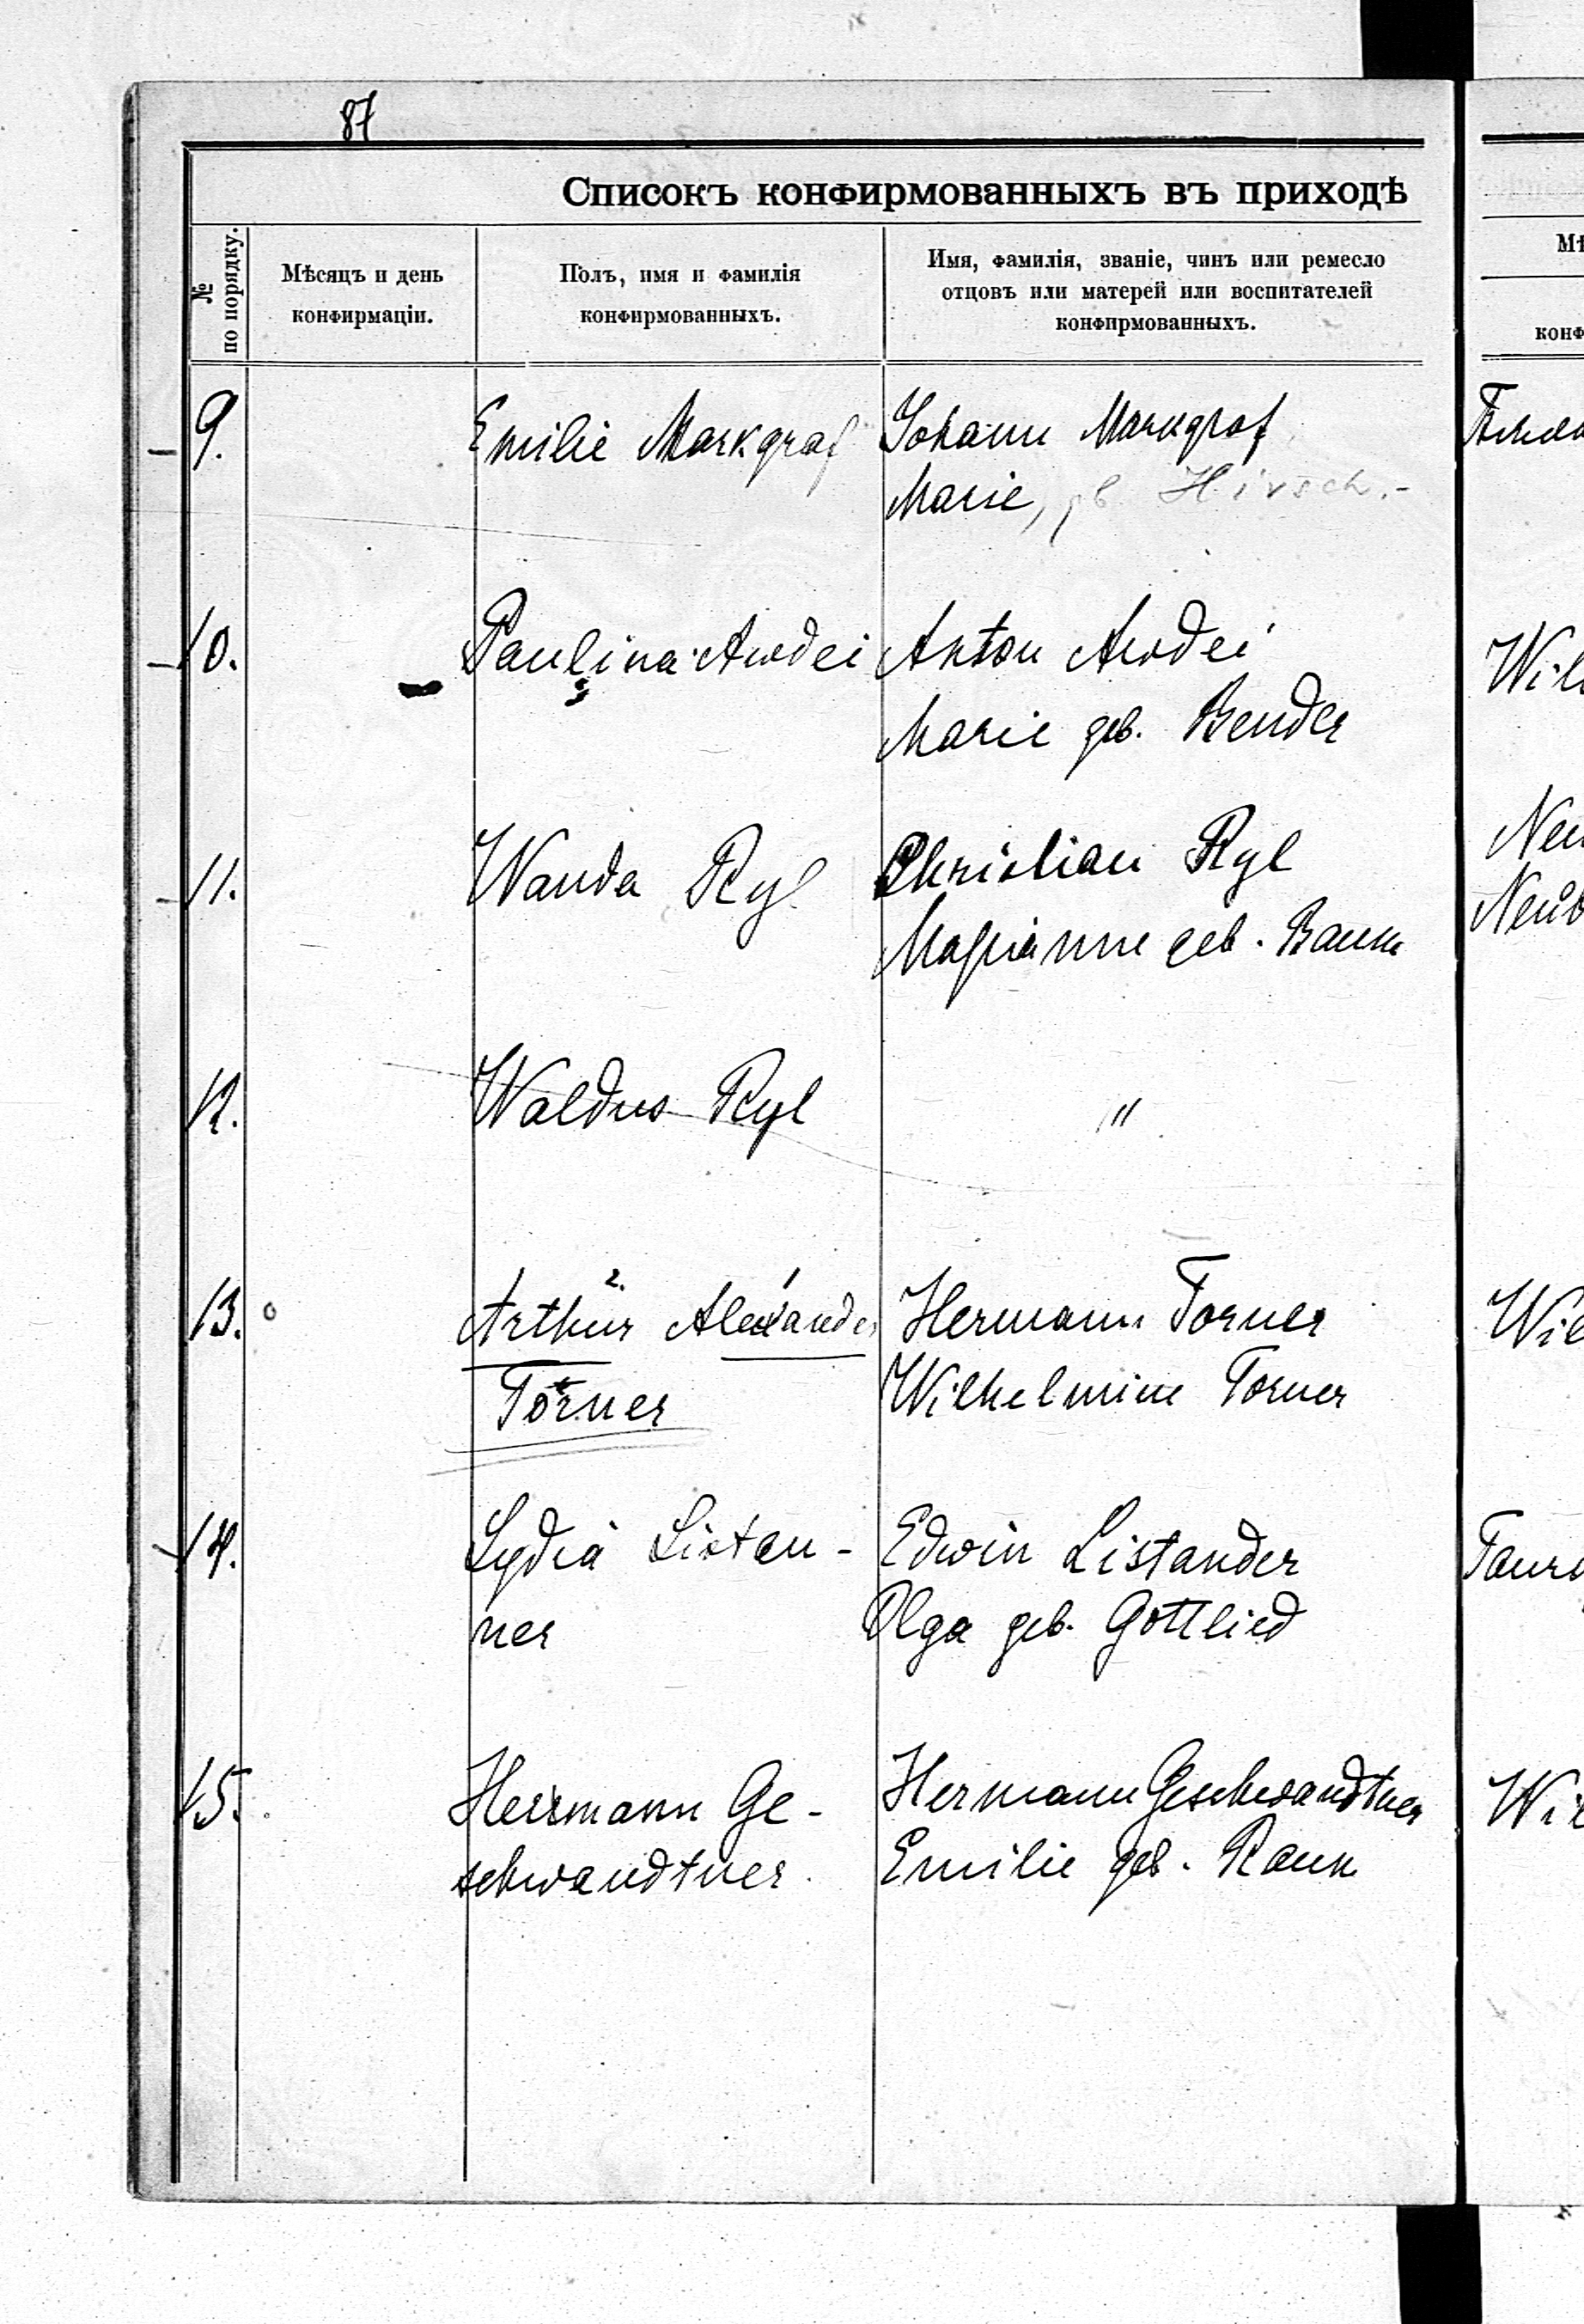 87
Списокъ конфирмованныхъ въ приходѣ
№ по порядку.
Мѣсяцъ и день
конфирмаціи.
Полъ, имя и фамилія
конфирмованныхъ.
Имя, фамилія, званіе, чинъ или ремесло
отцовъ или матерей или воспитателей
конфирмованныхъ.
9. Emilie Markgraf Johann Markgraf
Marie, gb Hirsch.-
10. Paulina Awdei Anton Awdei
Marie geb. Bender
11. Wanda Ryl Christian Ryl
Marianne geb.
12. Ryl "
13. Arthur Alexander Hermann Torner
Törner Wilhelmine Torner
14. Lydia Listan- Edwin Listander
ner Olga geb. Gottlied
15. Herrmann Ge- Hermann Geschwandtner
schwandtner. Emilie geb.